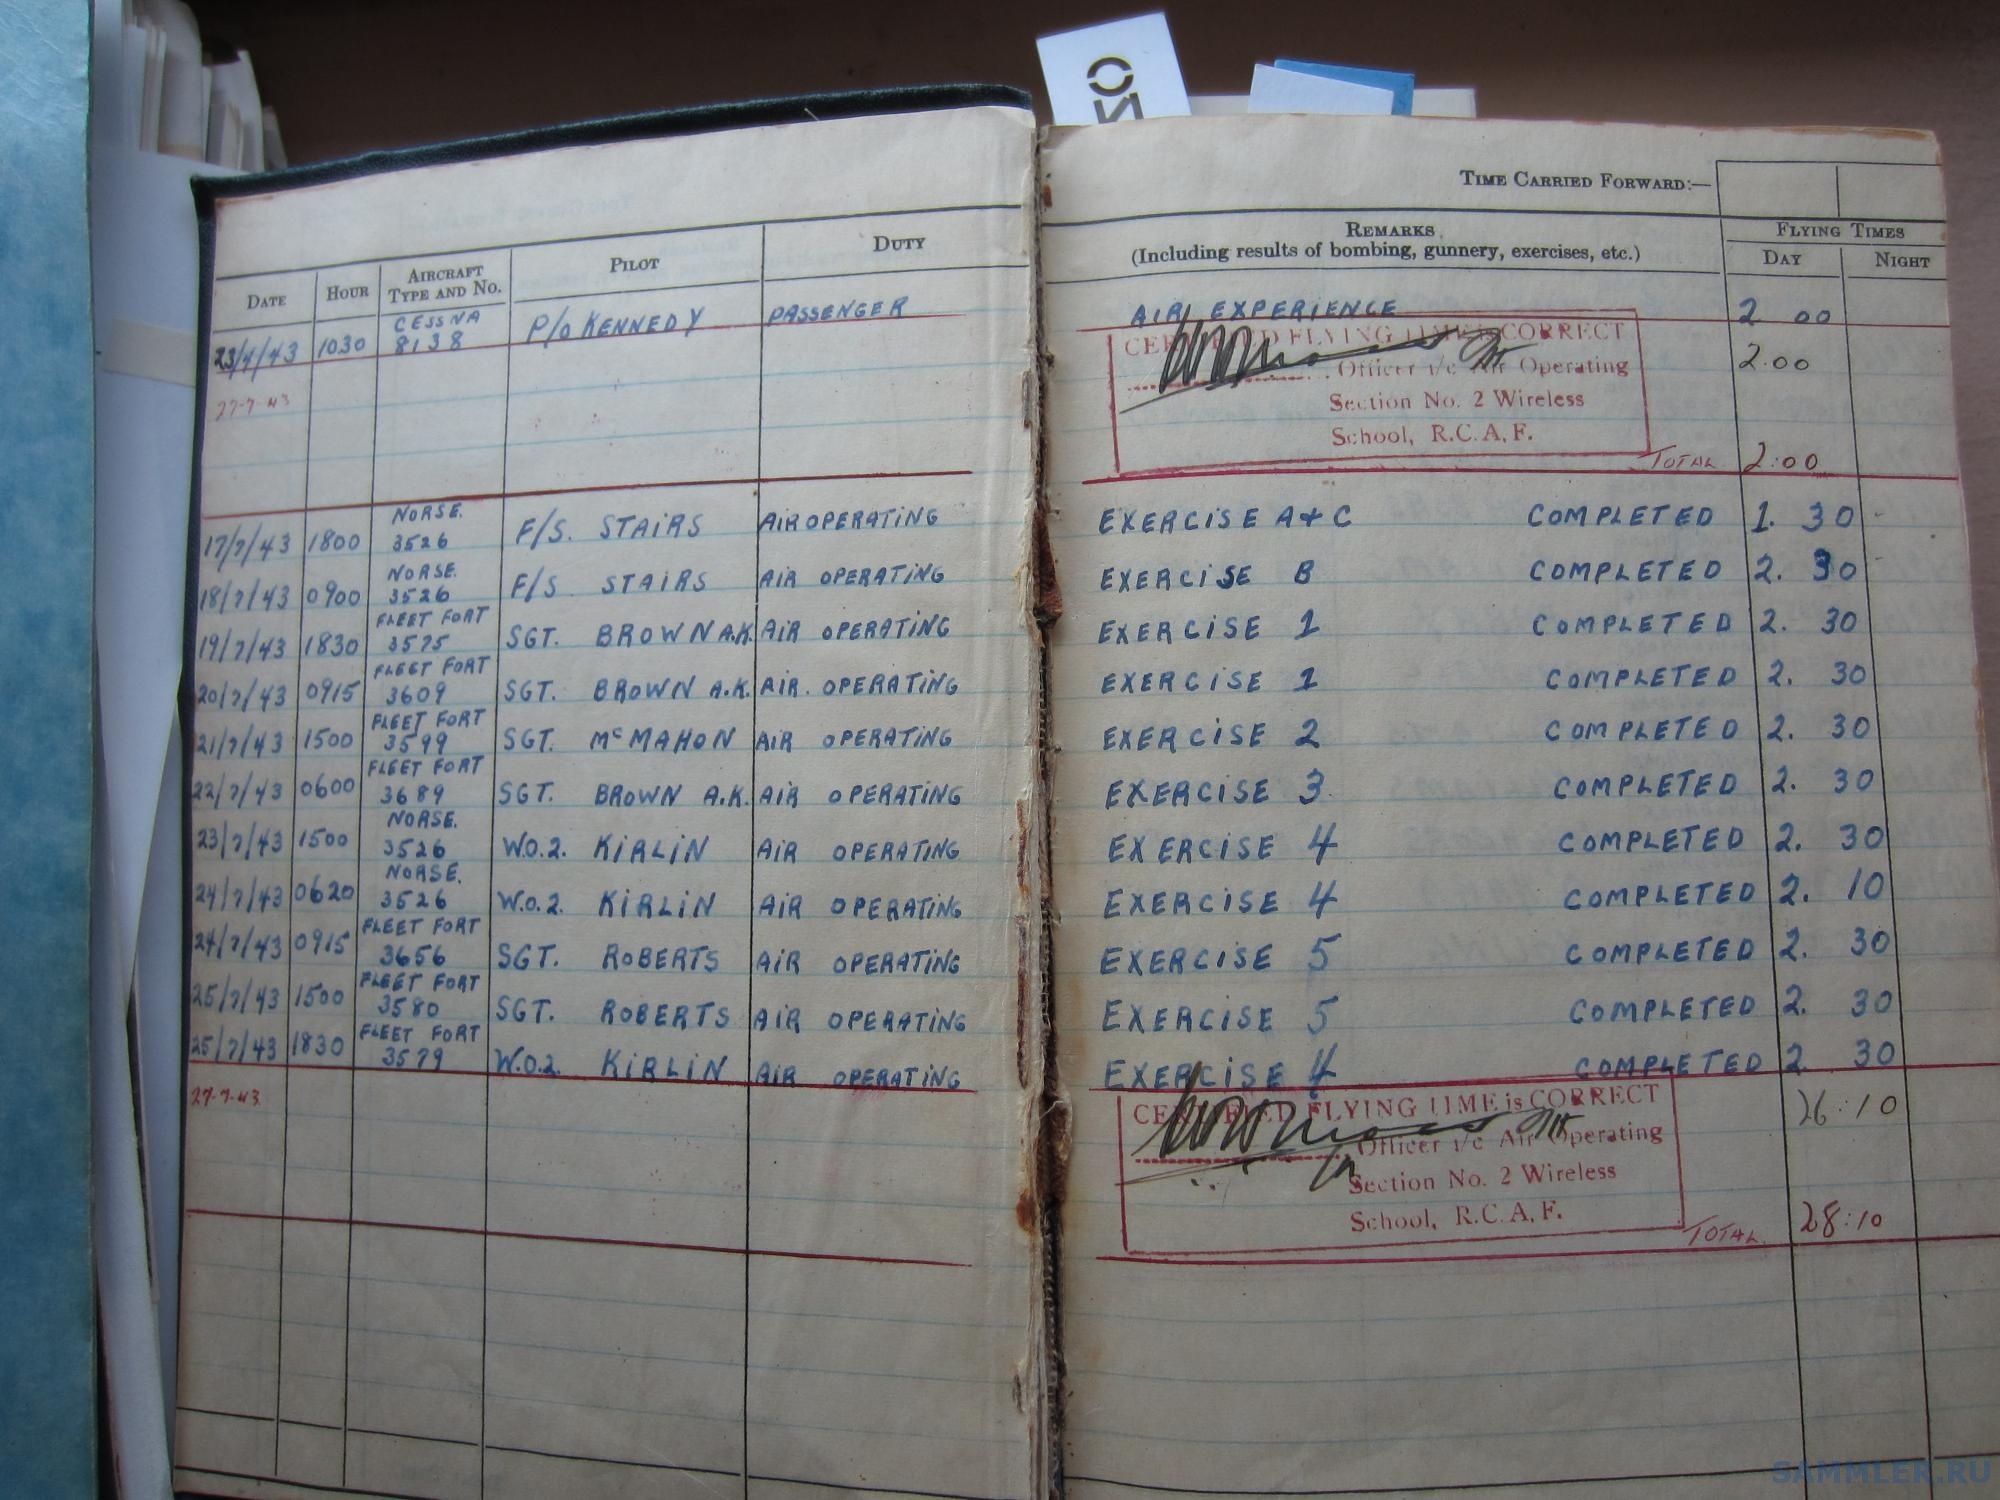 ON
TIME CARRIED FORWARD:—
DATE HOUR AIRCRAFT TYPE AND NO. PILOT DUTY REMARKS (Including results of bombing, gunnery, exercises, etc.) FLYING TIMES DAY NIGHT
23/4/43 1030 CESSNA 8138 P/O KENNEDY PASSENGER AIR EXPERIENCE 2 00
27-7-43 CERTIFIED FLYING TIME is CORRECT 2.00
Officer i/c Air Operating
Section No. 2 Wireless
School, R.C.A.F.
TOTAL 2:00
17/7/43 1800 NORSE. 3526 F/S. STAIRS AIR OPERATING EXERCISE A+C COMPLETED 1. 30
18/7/43 0900 NORSE. 3526 F/S STAIRS AIR OPERATING EXERCISE B COMPLETED 2. 30
19/7/43 1830 FLEET FORT 3575 SGT. BROWN A.K. AIR OPERATING EXERCISE 1 COMPLETED 2. 30
20/7/43 0915 FLEET FORT 3609 SGT. BROWN A.K. AIR. OPERATING EXERCISE 1 COMPLETED 2. 30
21/7/43 1500 FLEET FORT 3599 SGT. McMAHON AIR OPERATING EXERCISE 2 COMPLETED 2. 30
22/7/43 0600 FLEET FORT 3689 SGT. BROWN A.K. AIR OPERATING EXERCISE 3 COMPLETED 2. 30
23/7/43 1500 NORSE. 3526 W.O.2. KIRLIN AIR OPERATING EXERCISE 4 COMPLETED 2. 30
24/7/43 0620 NORSE. 3526 W.O.2. KIRLIN AIR OPERATING EXERCISE 4 COMPLETED 2. 10
24/7/43 0915 FLEET FORT 3656 SGT. ROBERTS AIR OPERATING EXERCISE 5 COMPLETED 2. 30
25/7/43 1500 FLEET FORT 3580 SGT. ROBERTS AIR OPERATING EXERCISE 5 COMPLETED 2. 30
25/7/43 1830 FLEET FORT 3579 W.O.2. KIRLIN AIR OPERATING EXERCISE 4 COMPLETED 2. 30
27-7-43 CERTIFIED FLYING TIME is CORRECT 26:10
Officer i/c Air Operating
Section No. 2 Wireless
School, R.C.A.F.
TOTAL 28:10
SAMMLER.RU